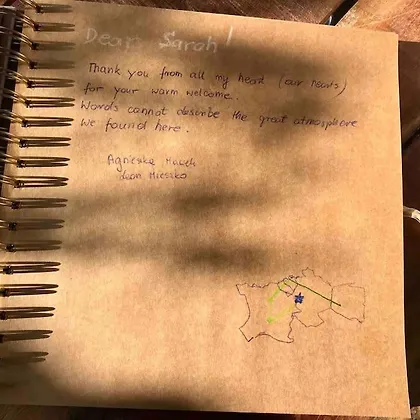 Dear Sarah!
Thank you from all my heart (our hearts)
for your warm welcome.
Words cannot describe the great atmosphere
we found here.
Agnieszka Maciek
Mieszko